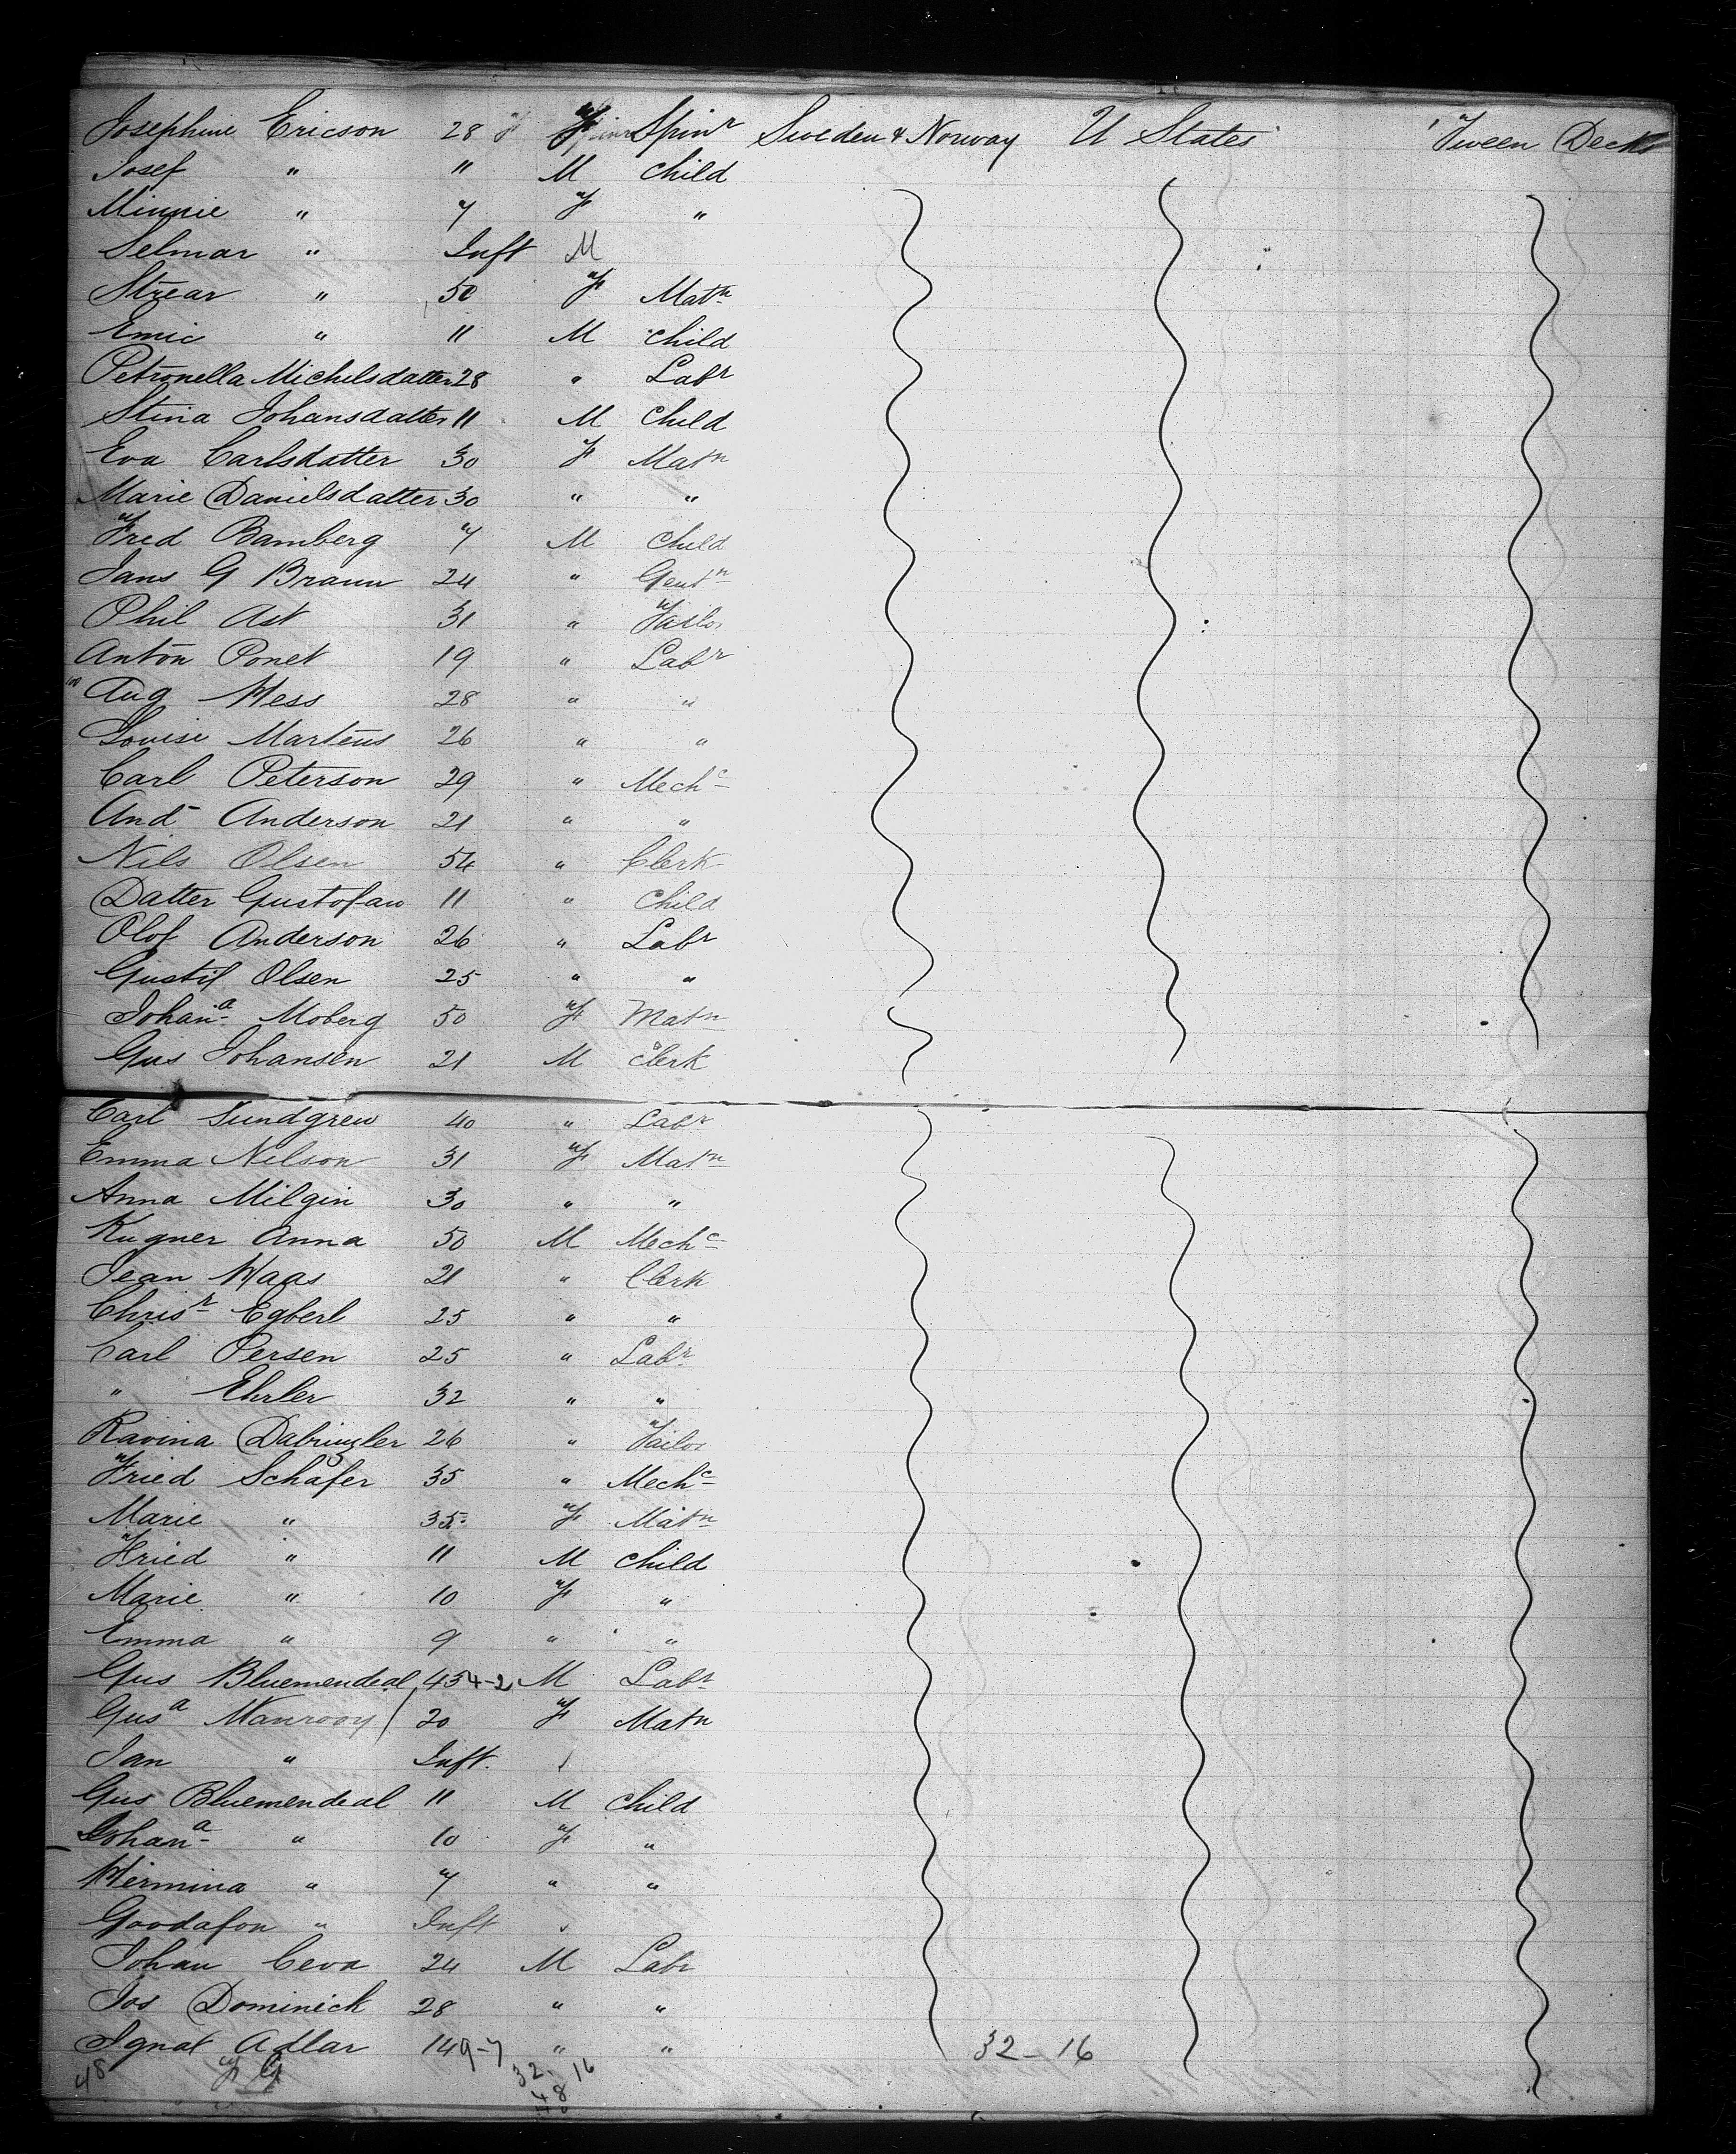 Josephine Ericson 28 F Spinr Sweden & Norway U States 'Tween Decks
Josef " 11 M Child
Minnie " 7 F "
Selmar " Inft M
Strear " 50 F Matn
Emic " 11 M Child
Petronella Michelsdatter 28 " Labr
Stina Johansdatter 11 M Child
Eva Carlsdatter 30 F Matn
Marie Danielsdatter 30 " "
Fred Bamberg 7 M Child
Jans G Braun 24 " Gentn
Phil Ast 31 " Tailor
Anton Ponet 19 " Labr
Aug Hess 28 " "
Louise Martens 26 " "
Carl Peterson 29 " Mechc
And Anderson 21 " "
Nils Olsen 54 " Clerk
Datter Gustofan 11 " Child
Olof Anderson 26 " Labr
Gustif Olsen 25 " "
Johana Moberg 50 F Matn
Gus Johansen 21 M Clerk
Carl Sundgren 40 " Labr
Emma Nilson 31 F Matn
Anna Milgin 30 " "
Kugner Anna 50 M Mechc
Jean Haas 21 " Clerk
Chrisr Egberl 25 " "
Carl Persen 25 " Labr
" Ehrler 32 " "
Ravina 26 " Tailor
Fried Schafer 35 " Mechc
Marie " 35 F Matn
Fried " 11 M Child
Marie " 10 F "
Emma " 9 " "
Gus Bluemendeal 45 4-2 M Labr
Gusa Manrooy 20 F Matn
Jan " Inft.
Gus Bluemendeal 11 M Child
Johana " 10 F "
Hermina " 7 " "
Goodafon " Inft "
Johan Ceva 24 M Labr
Jos Dominick 28 " "
Ignat Adlar 14 9-7 " " 32-16
48 F G 32. 16
48